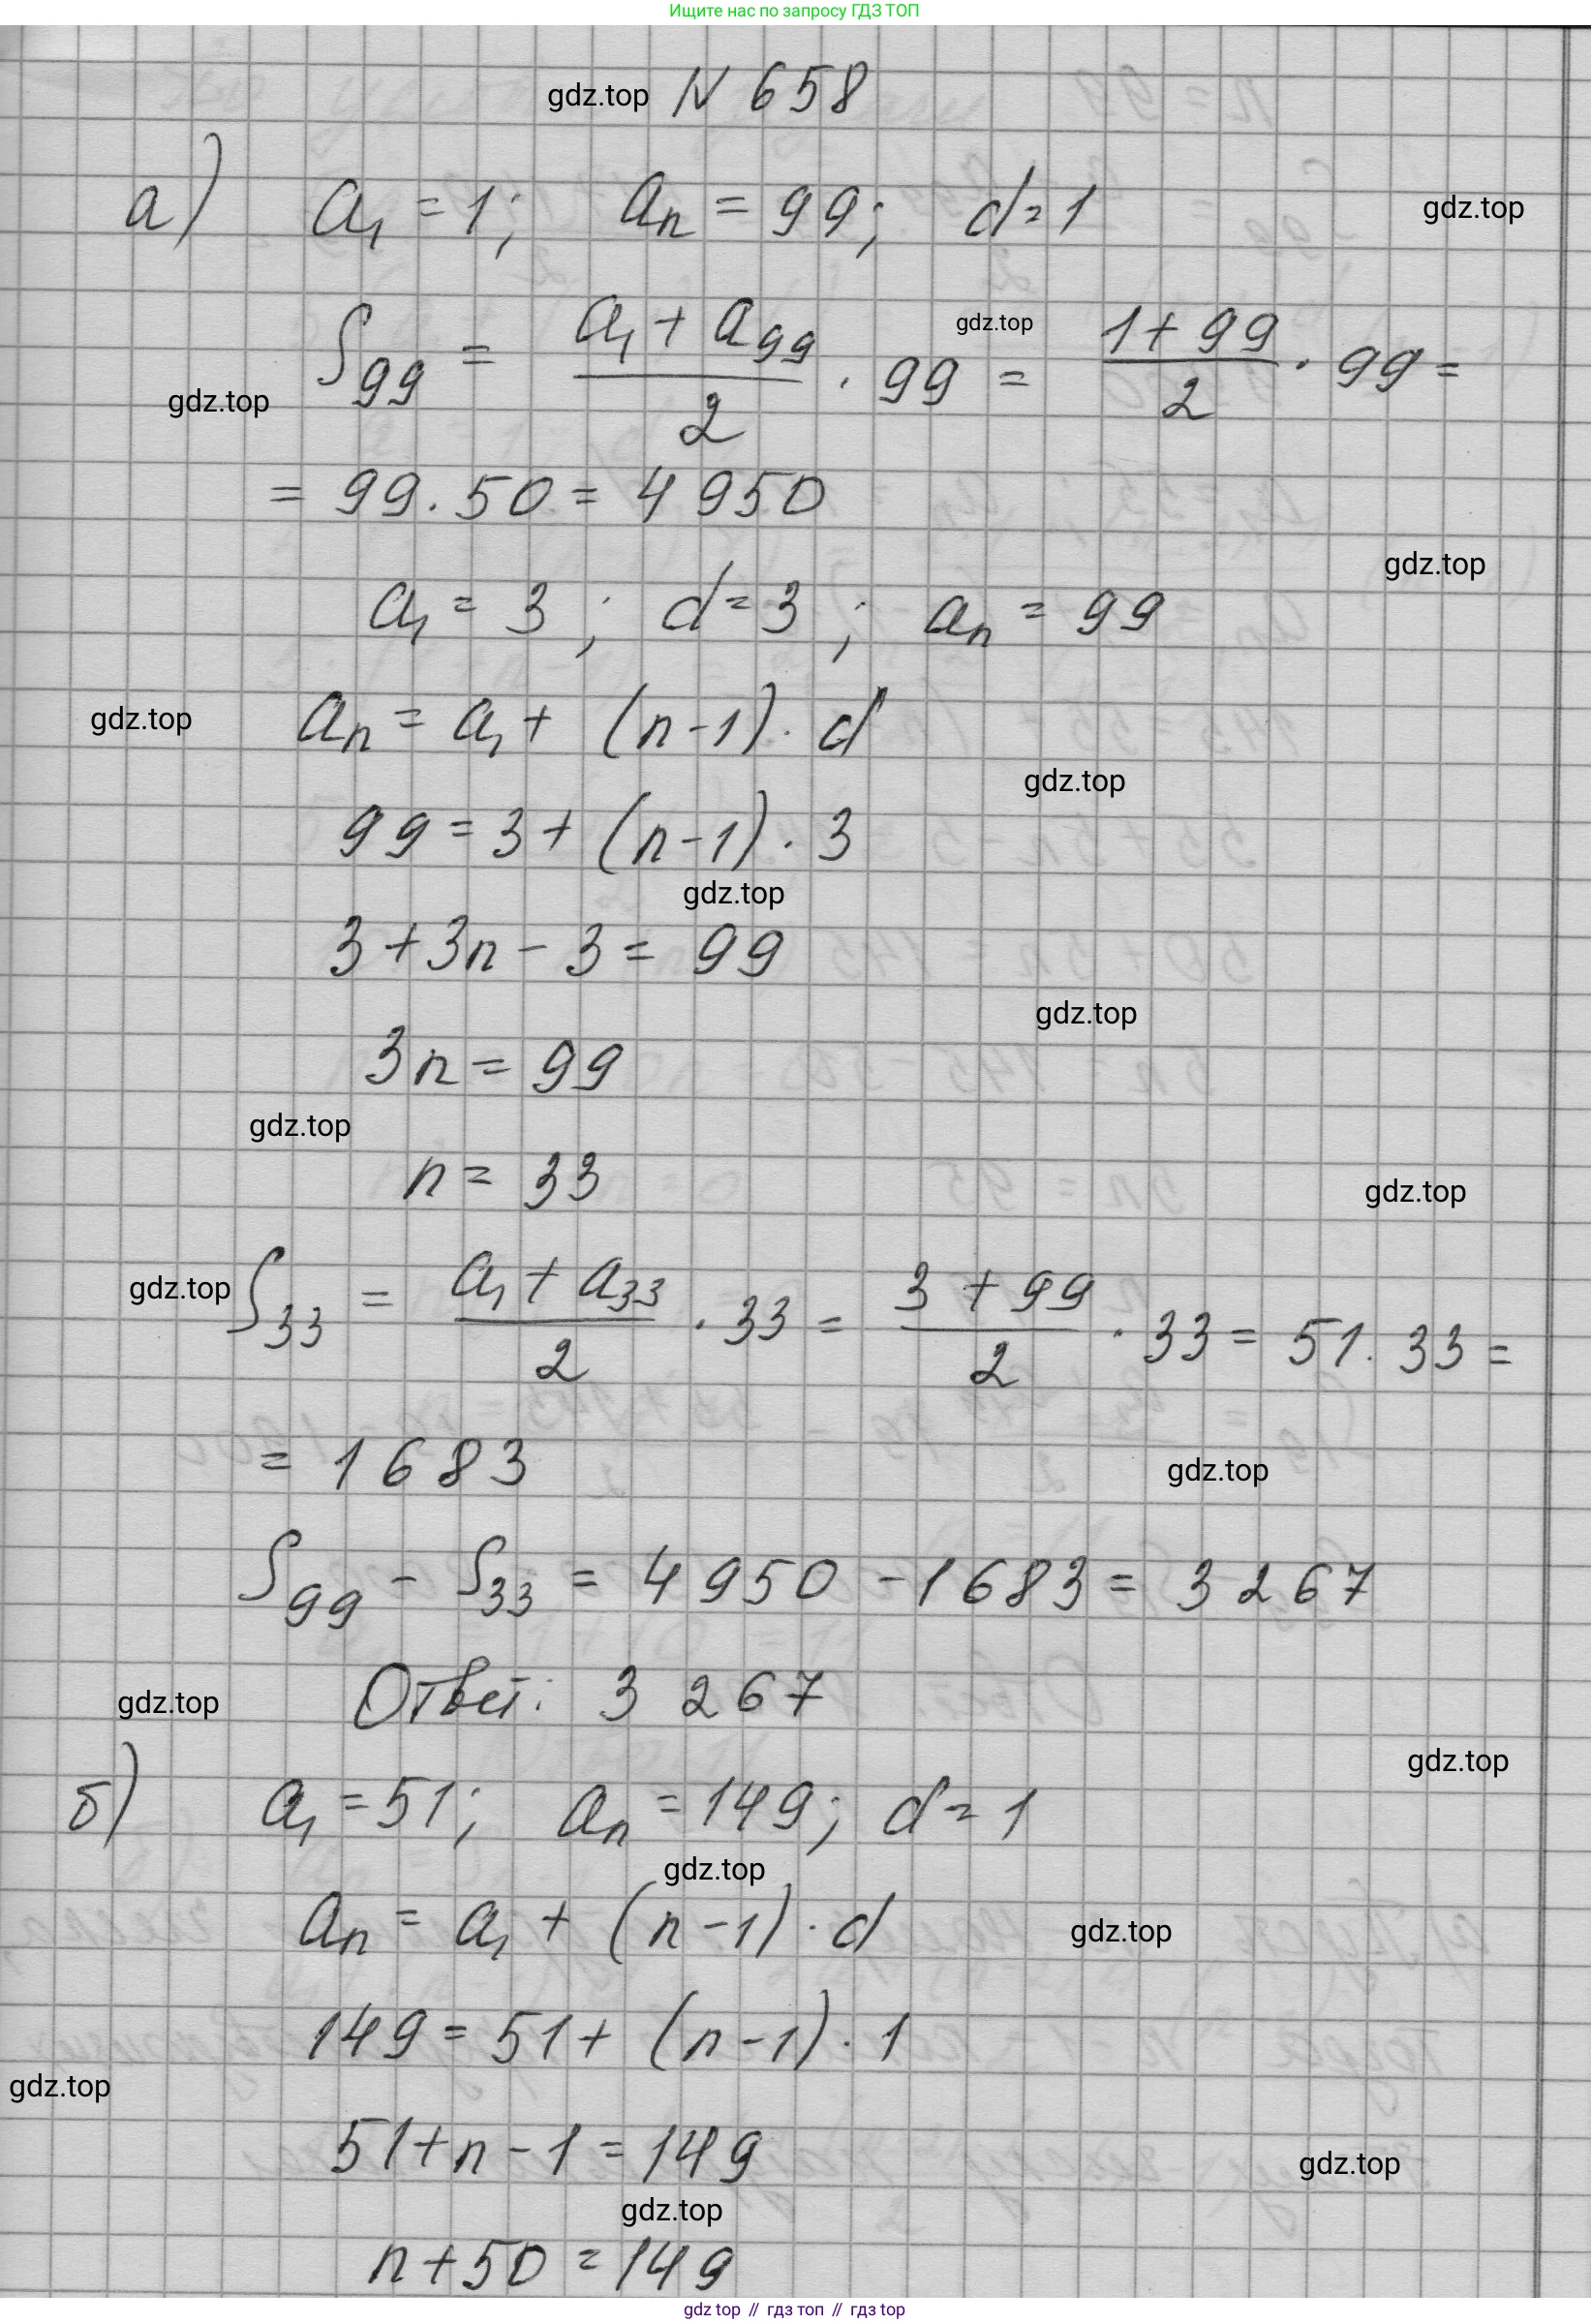 Ищите нас по запросу ГДЗ ТОП
gdz.top N 658
а) a₁ = 1; aₙ = 99; d = 1
gdz.top
S₉₉ = (a₁ + a₉₉)/2 · 99 = (1 + 99)/2 · 99 =
gdz.top
gdz.top
= 99 · 50 = 4950
gdz.top
a₁ = 3; d = 3; aₙ = 99
gdz.top
aₙ = a₁ + (n-1) · d
gdz.top
99 = 3 + (n-1) · 3
gdz.top
3 + 3n - 3 = 99
gdz.top
3n = 99
gdz.top
n = 33
gdz.top
gdz.top
S₃₃ = (a₁ + a₃₃)/2 · 33 = (3 + 99)/2 · 33 = 51 · 33 =
= 1683
gdz.top
S₉₉ - S₃₃ = 4950 - 1683 = 3267
Ответ: 3 267
gdz.top
gdz.top
б) a₁ = 51; aₙ = 149; d = 1
gdz.top
aₙ = a₁ + (n-1) · d
gdz.top
149 = 51 + (n-1) · 1
gdz.top
51 + n - 1 = 149
gdz.top
gdz.top
n + 50 = 149
gdz.top // гдз топ // gdz top